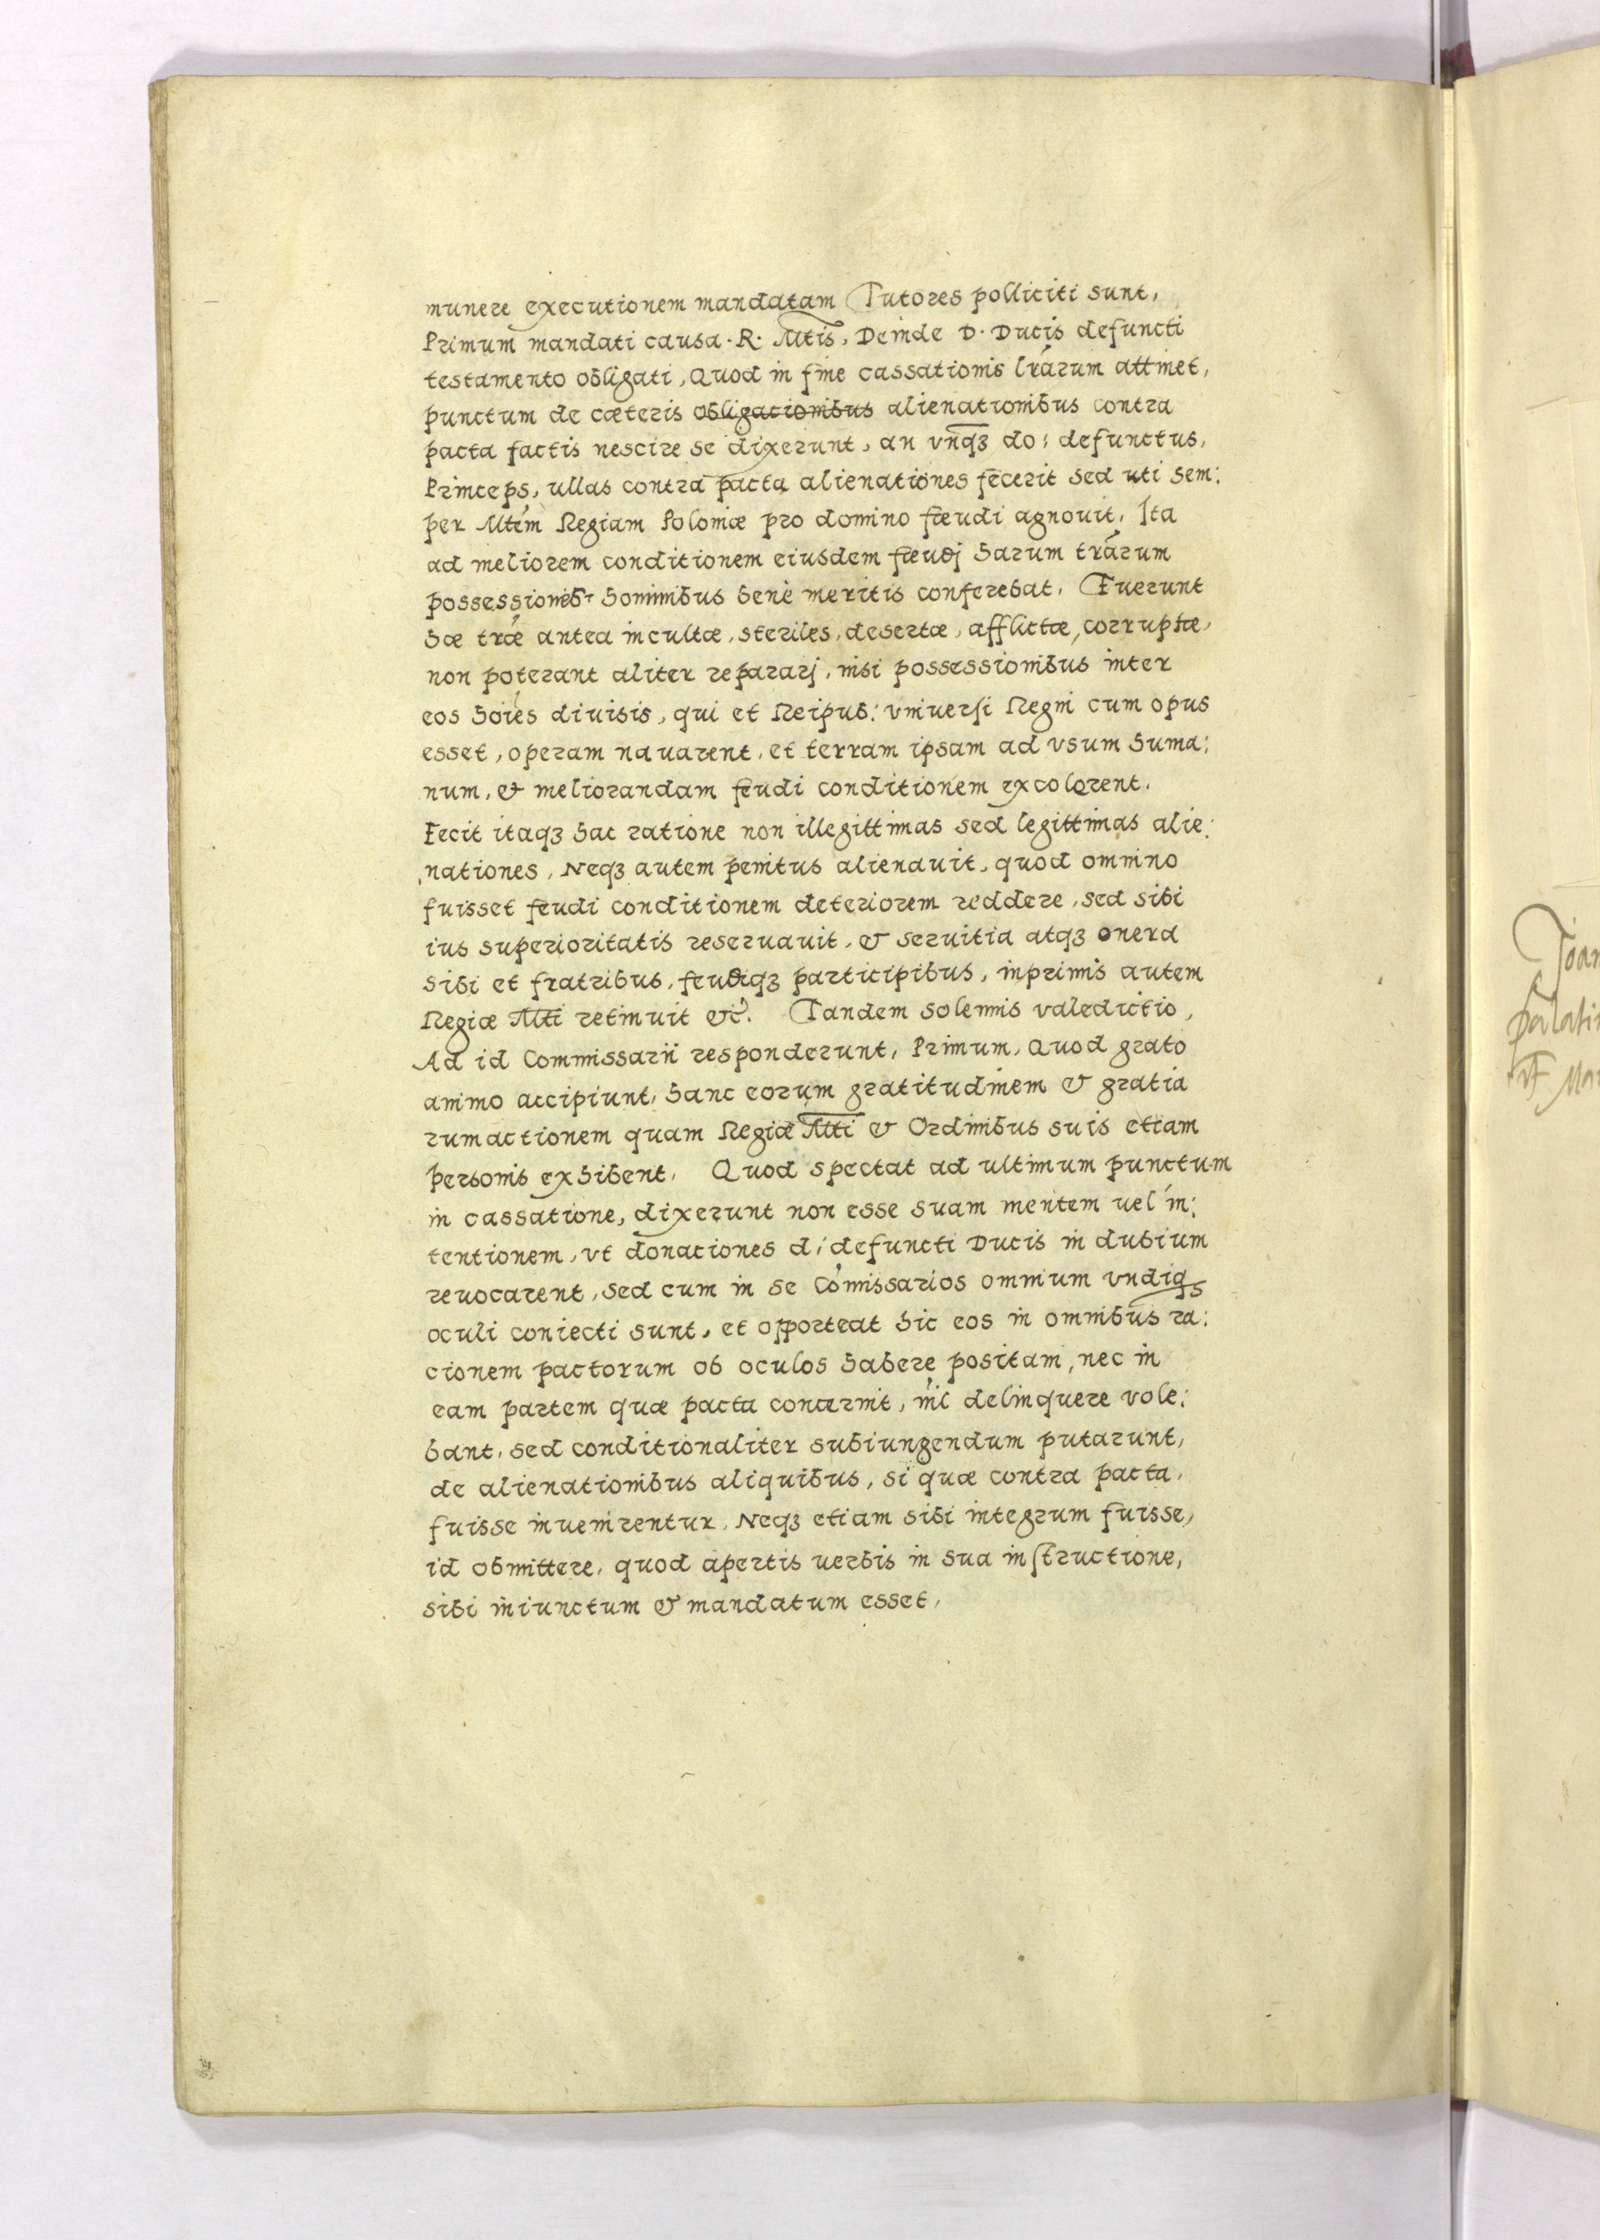 munere executionem mandatam Tutores polliciti sunt,
Primum mandati causa. R. Mtis, Deinde D. Ducis defuncti
testamento obligati, Quod in fine cassationis lrárum attinet,
punctum de cæteris obligacionibus alienationibus contra
pacta factis nescire se dixerunt, an vnqȝ do: defunctus,
Princeps, ullas contra pacta alienationes fecerit sed uti sem:
per Mtém Regiam Poloniæ pro domino fœudi agnouit, Ita
ad meliorem conditionem eiusdem fœudj harum trárum
possessionib hominibus benè meritis conferebat. Fuerunt
hæ træ antea incultæ, steriles, desertæ, afflictæ, corruptæ,
non poterant aliter repararj, nisi possessionibus inter
eos hoíes diuisis, qui et Reipub: vniuersi Regni cum opus
esset, operam nauarent, et terram ipsam ad vsum huma:
num, & meliorandam feudi conditionem excolerent.
Fecit itaqȝ hac ratione non illegittimas sed legittimas alie:
nationes, Neqȝ autem penitus alienauit, quod omnino
fuisset feudi conditionem deteriorem reddere, sed sibi
ius superioritatis reseruauit, & seruitia atqȝ onera
sibi et fratribus, feudiqȝ participibus, inprimis autem
Regiæ Mti retinuit &c. Tandem solennis valedictio,
Ad id Commissarii responderunt, Primum, Quod grato
animo accipiunt, hanc eorum gratitudinem & gratia
rum actionem quam Regiæ Mti & Ordinibus suis etiam
personis exhibent. Quod spectat ad ultimum punctum
in cassatione, dixerunt non esse suam mentem uel in:
tentionem, vt donaciones d: defuncti Ducis in dubium
reuocarent, sed cum in se Comissarios omnium vndiqȝ
oculi coniecti sunt, et opporteat hic eos in omnibus ra:
cionem pactorum ob oculos habere positam, nec in
eam partem quæ pacta concernit, nil delinquere vole:
bant, sed conditionaliter subiungendum putarunt,
de alienationibus aliquibus, si quæ contra pacta,
fuisse inuenirentur, Neqȝ etiam sibi integrum fuisse,
id obmittere, quod apertis uerbis in sua instructione,
sibi iniunctum & mandatum esset,